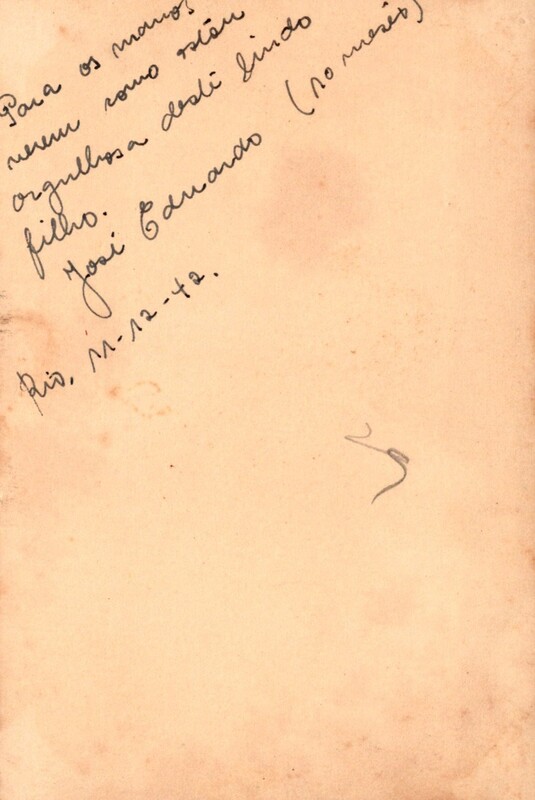 Para os manos
verem como estou
orgulhosa deste lindo
filho.
José Eduardo (10 meses)
Rio, 11-12-42.